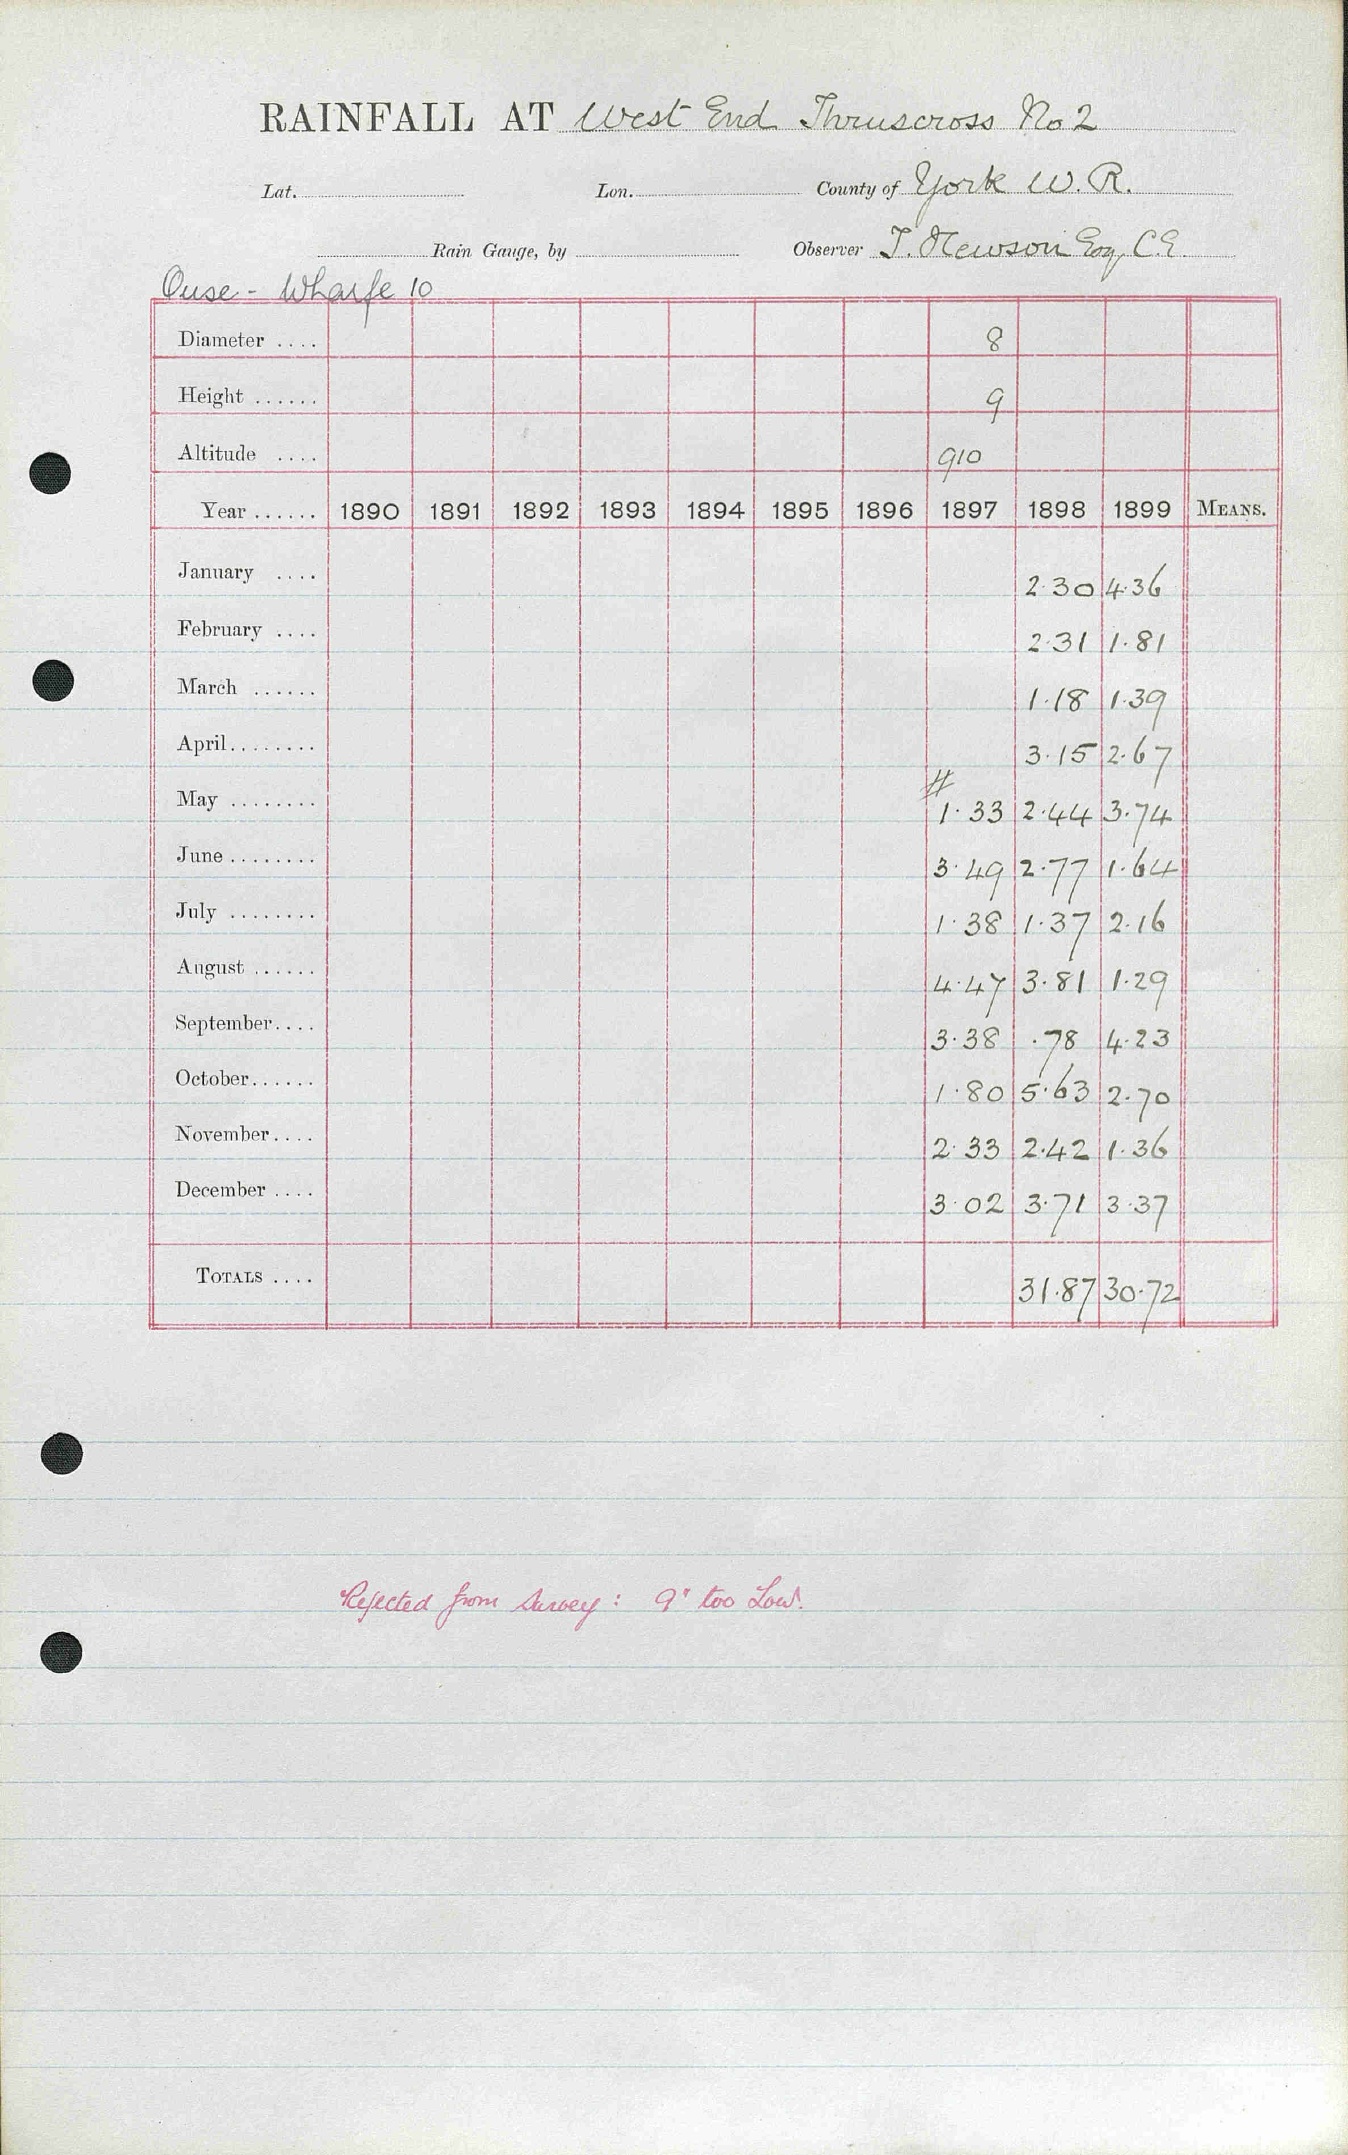 RAINFALL AT West End Thruscross No 2
Lat. Lon. County of York W. R.
Rain Gauge, by Observer T. Hewson Esq C.E.
Ouse - Wharfe 10
Diameter .... 8
Height ...... 9
Altitude .... 910
Year ...... 1890 1891 1892 1893 1894 1895 1896 1897 1898 1899 MEANS.
January .... 2.30 4.36
February .... 2.31 1.81
March ...... 1.18 1.39
April........ 3.15 2.67
May ........ # 1.33 2.44 3.74
June ........ 3.49 2.77 1.64
July ........ 1.38 1.37 2.16
August ...... 4.47 3.81 1.29
September.... 3.38 .78 4.23
October...... 1.80 5.63 2.70
November.... 2.33 2.42 1.36
December .... 3.02 3.71 3.37
TOTALS .... 31.87 30.72
Rejected from Survey: 9" too Low.